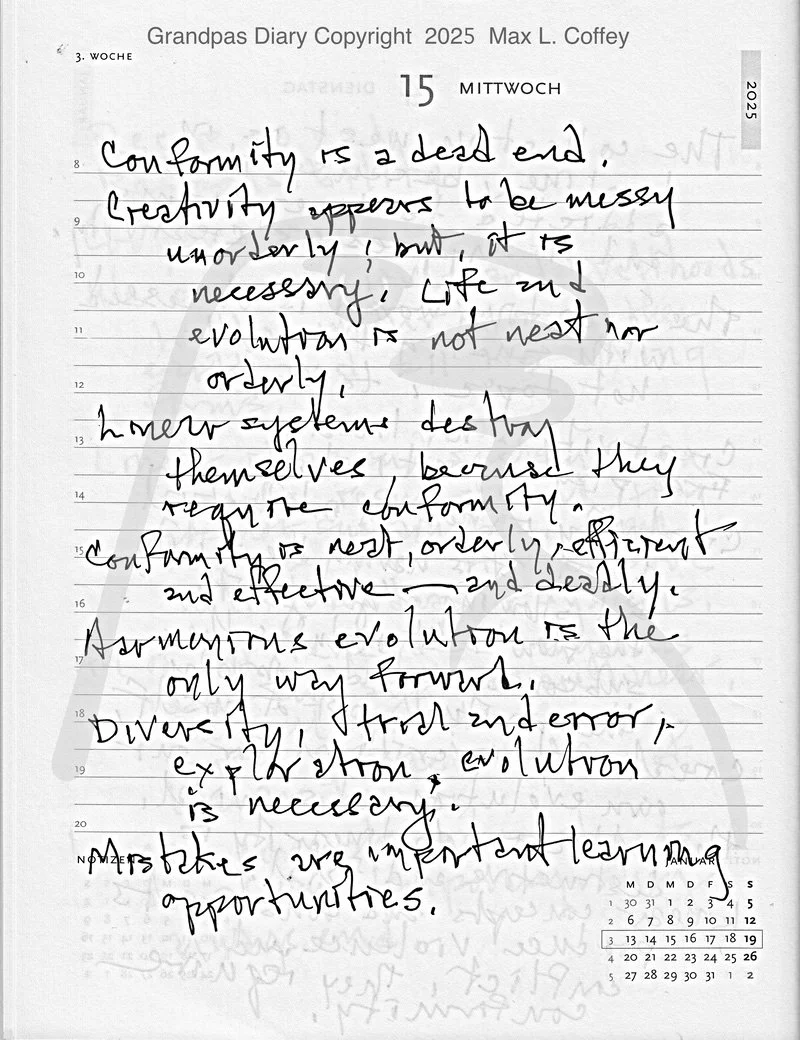 Grandpas Diary Copyright 2025 Max L. Coffey
3. WOCHE
15 MITTWOCH
2025
8 Conformity is a dead end.
Creativity appears to be messy
9 unorderly; but, it is
10 necessary. Life and
11 evolution is not neat nor
12 orderly.
Linear systems destroy
13 themselves, because they
14 require conformity.
15 Conformity is neat, orderly, efficient
and effective — and deadly.
16 Harmonious evolution is the
17 only way forward.
18 Diversity, trial and error,
19 exploration, evolution
is necessary.
20
NOTIZEN Mistakes are important learning
opportunities.
JANUAR
M D M D F S S
1 30 31 1 2 3 4 5
2 6 7 8 9 10 11 12
3 13 14 15 16 17 18 19
4 20 21 22 23 24 25 26
5 27 28 29 30 31 1 2